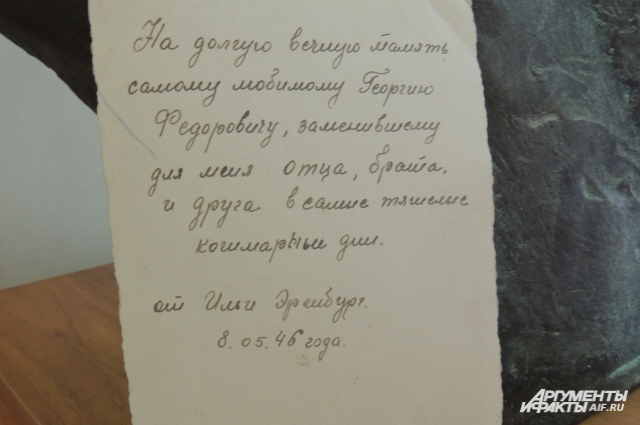 На долгую вечную память
самому любимому Георгию
Федоровичу, заменившему
для меня отца, брата,
и друга в самые тяжелые
кошмарные дни.
от Ильи Эренбург.
8. 05. 46 года.
АРГУМЕНТЫ
И ФАКТЫ AIF.RU